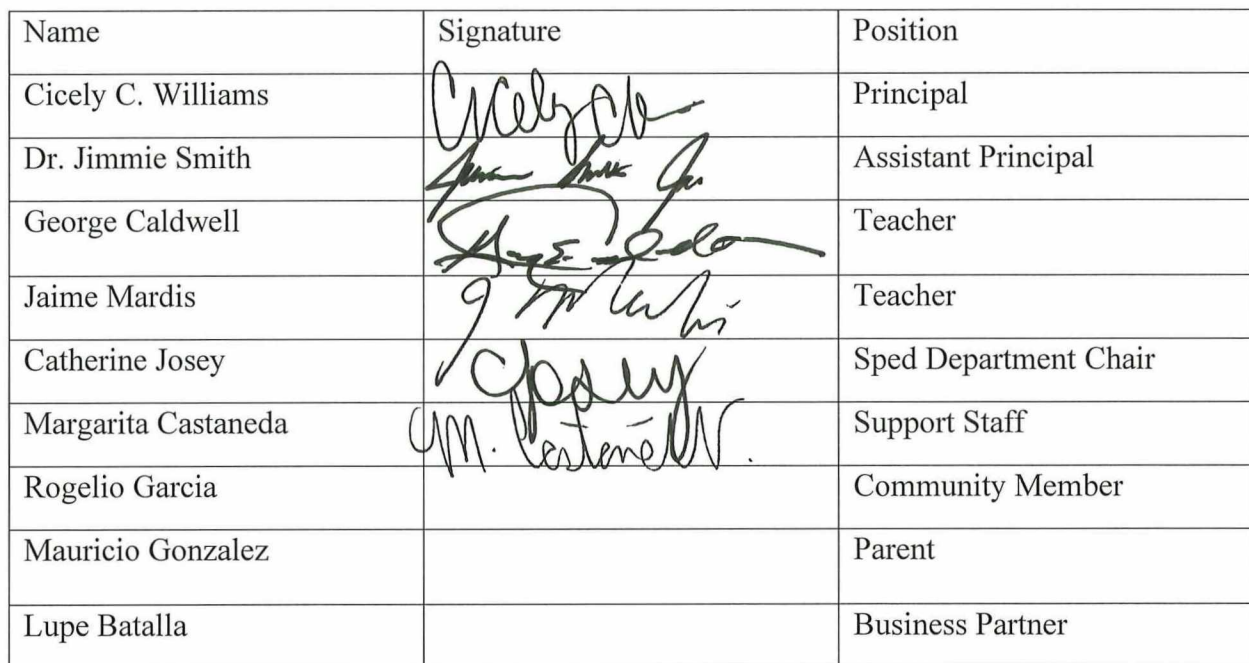 Name Signature Position
Cicely C. Williams Cicely Principal
Dr. Jimmie Smith Assistant Principal
George Caldwell Teacher
Jaime Mardis Teacher
Catherine Josey CJosey Sped Department Chair
Margarita Castaneda M. Support Staff
Rogelio Garcia Community Member
Mauricio Gonzalez Parent
Lupe Batalla Business Partner